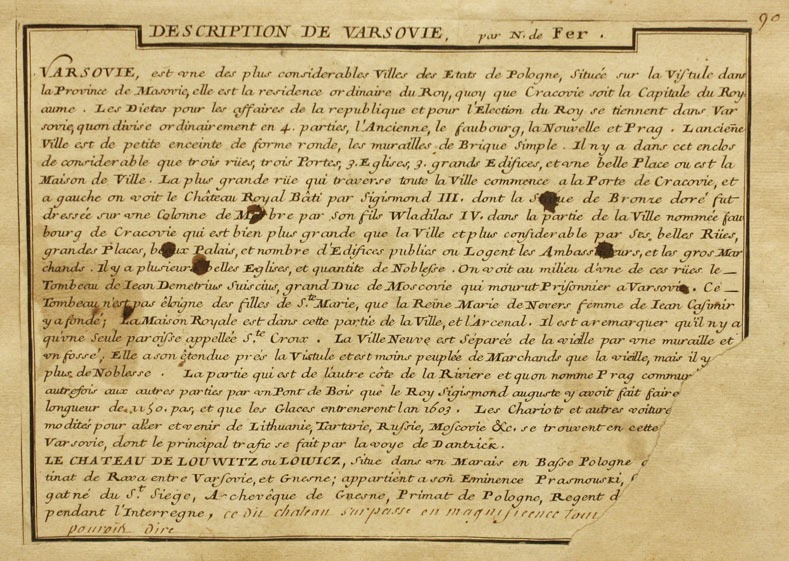 90
DESCRIPTION DE VARSOVIE, par N. de Fer.
VARSOVIE, est vne des plus considerables Villes des Etats de Pologne, Située sur la Vistule dans
la Province de Masovie, elle est la residence ordinaire du Roy, quoy que Cracovie soit la Capitale du Roy
aume. Les Dietes pour les affaires de la republique et pour l'Election du Roy se tiennent dans Var
sovie, quon divise ordinairement en 4. parties, l'Ancienne, le faubourg, la Nouvelle et Prag. Lanciēne
Ville est de petite enceinte de forme ronde, les murailles de Brique Simple. Il n'y a dans cet enclos
de considerable que trois rües, trois Portes, 3. Eglises, 3. grands Edifices, et vne belle Place ou est la
Maison de Ville. La plus grande rüe qui traverse toute la Ville commence a la Porte de Cracovie, et
a gauche on voit le Château Royal Bâti par Sigismond III. dont la ue de Bronze doré fut
dressée sur vne Colonne de M bre par son fils Wladilas IV. dans la partie de la Ville nommée fau
bourg de Cracovie qui est bien plus grande que la Ville et plus considerable par Ses belles Rües,
grandes Places, b ux Palais, et nombre d'Edifices publics ou Logent les Ambass urs, et les gros Mar
chands. Il y a plusieurs belles Eglises, et quantite de Noblesse. On voit au milieu d'vne de ces rües le _
Tombeau de Iean Demetrius Suiscius, grand Duc de Moscovie qui mourut Prisonnier a Varsovie. Ce _
Tombeau n'est pas éloigne des filles de S.te Marie, que la Reine Marie de Nevers femme de Iean Casimir
y a fondé; La Maison Royale est dans cette partie de la Ville, et l'Arcenal. Il est a remarquer qu'il n'y a
qu'vne Seule paroisse appellée S.te Croix. La Ville Neuve est Séparée de la vieille par vne muraille et
vn fossé, Elle a son étendue près la Vistule et est moins peuplée de Marchands que la vieille, mais il y
plus de Noblesse. La partie qui est de l'autre côte de la Riviere et quon nomme Prag commur
autrefois aux autres parties par vn Pont de Bois que le Roy Sigismond auguste y avoit fait faire
longueur de 1150. pas, et que les Glaces entrenerent lan 1603. Les Chariots et autres voiture
modités pour aller et venir de Lithuanie, Tartarie, Russie, Moscovie &c. se trouvent en cette
Varsovie, dont le principal trafic se fait par la voye de Dantzick.
LE CHATEAU DE LOUWITZ ou LOWICZ, Situe dans vn Marais en Basse Pologne
tinat de Rava entre Varsovie, et Gnesne; appartient a soñ Eminence Prasmouski,
gat né du S.t Siege, Archevêque de Gnesne, Primat de Pologne, Regent d
pendant l'Interregne, ce dit chateau surpasse en magnificence tout
pouroit dire